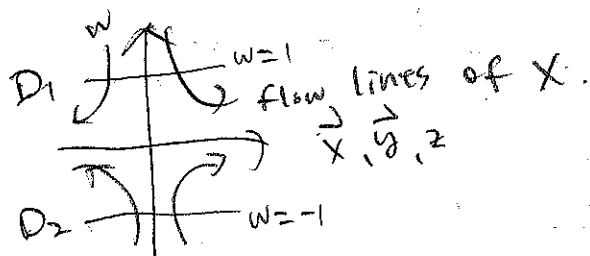 w
D₁ w=1
flow lines of X.
x⃗, y⃗, z
D₂ w=-1